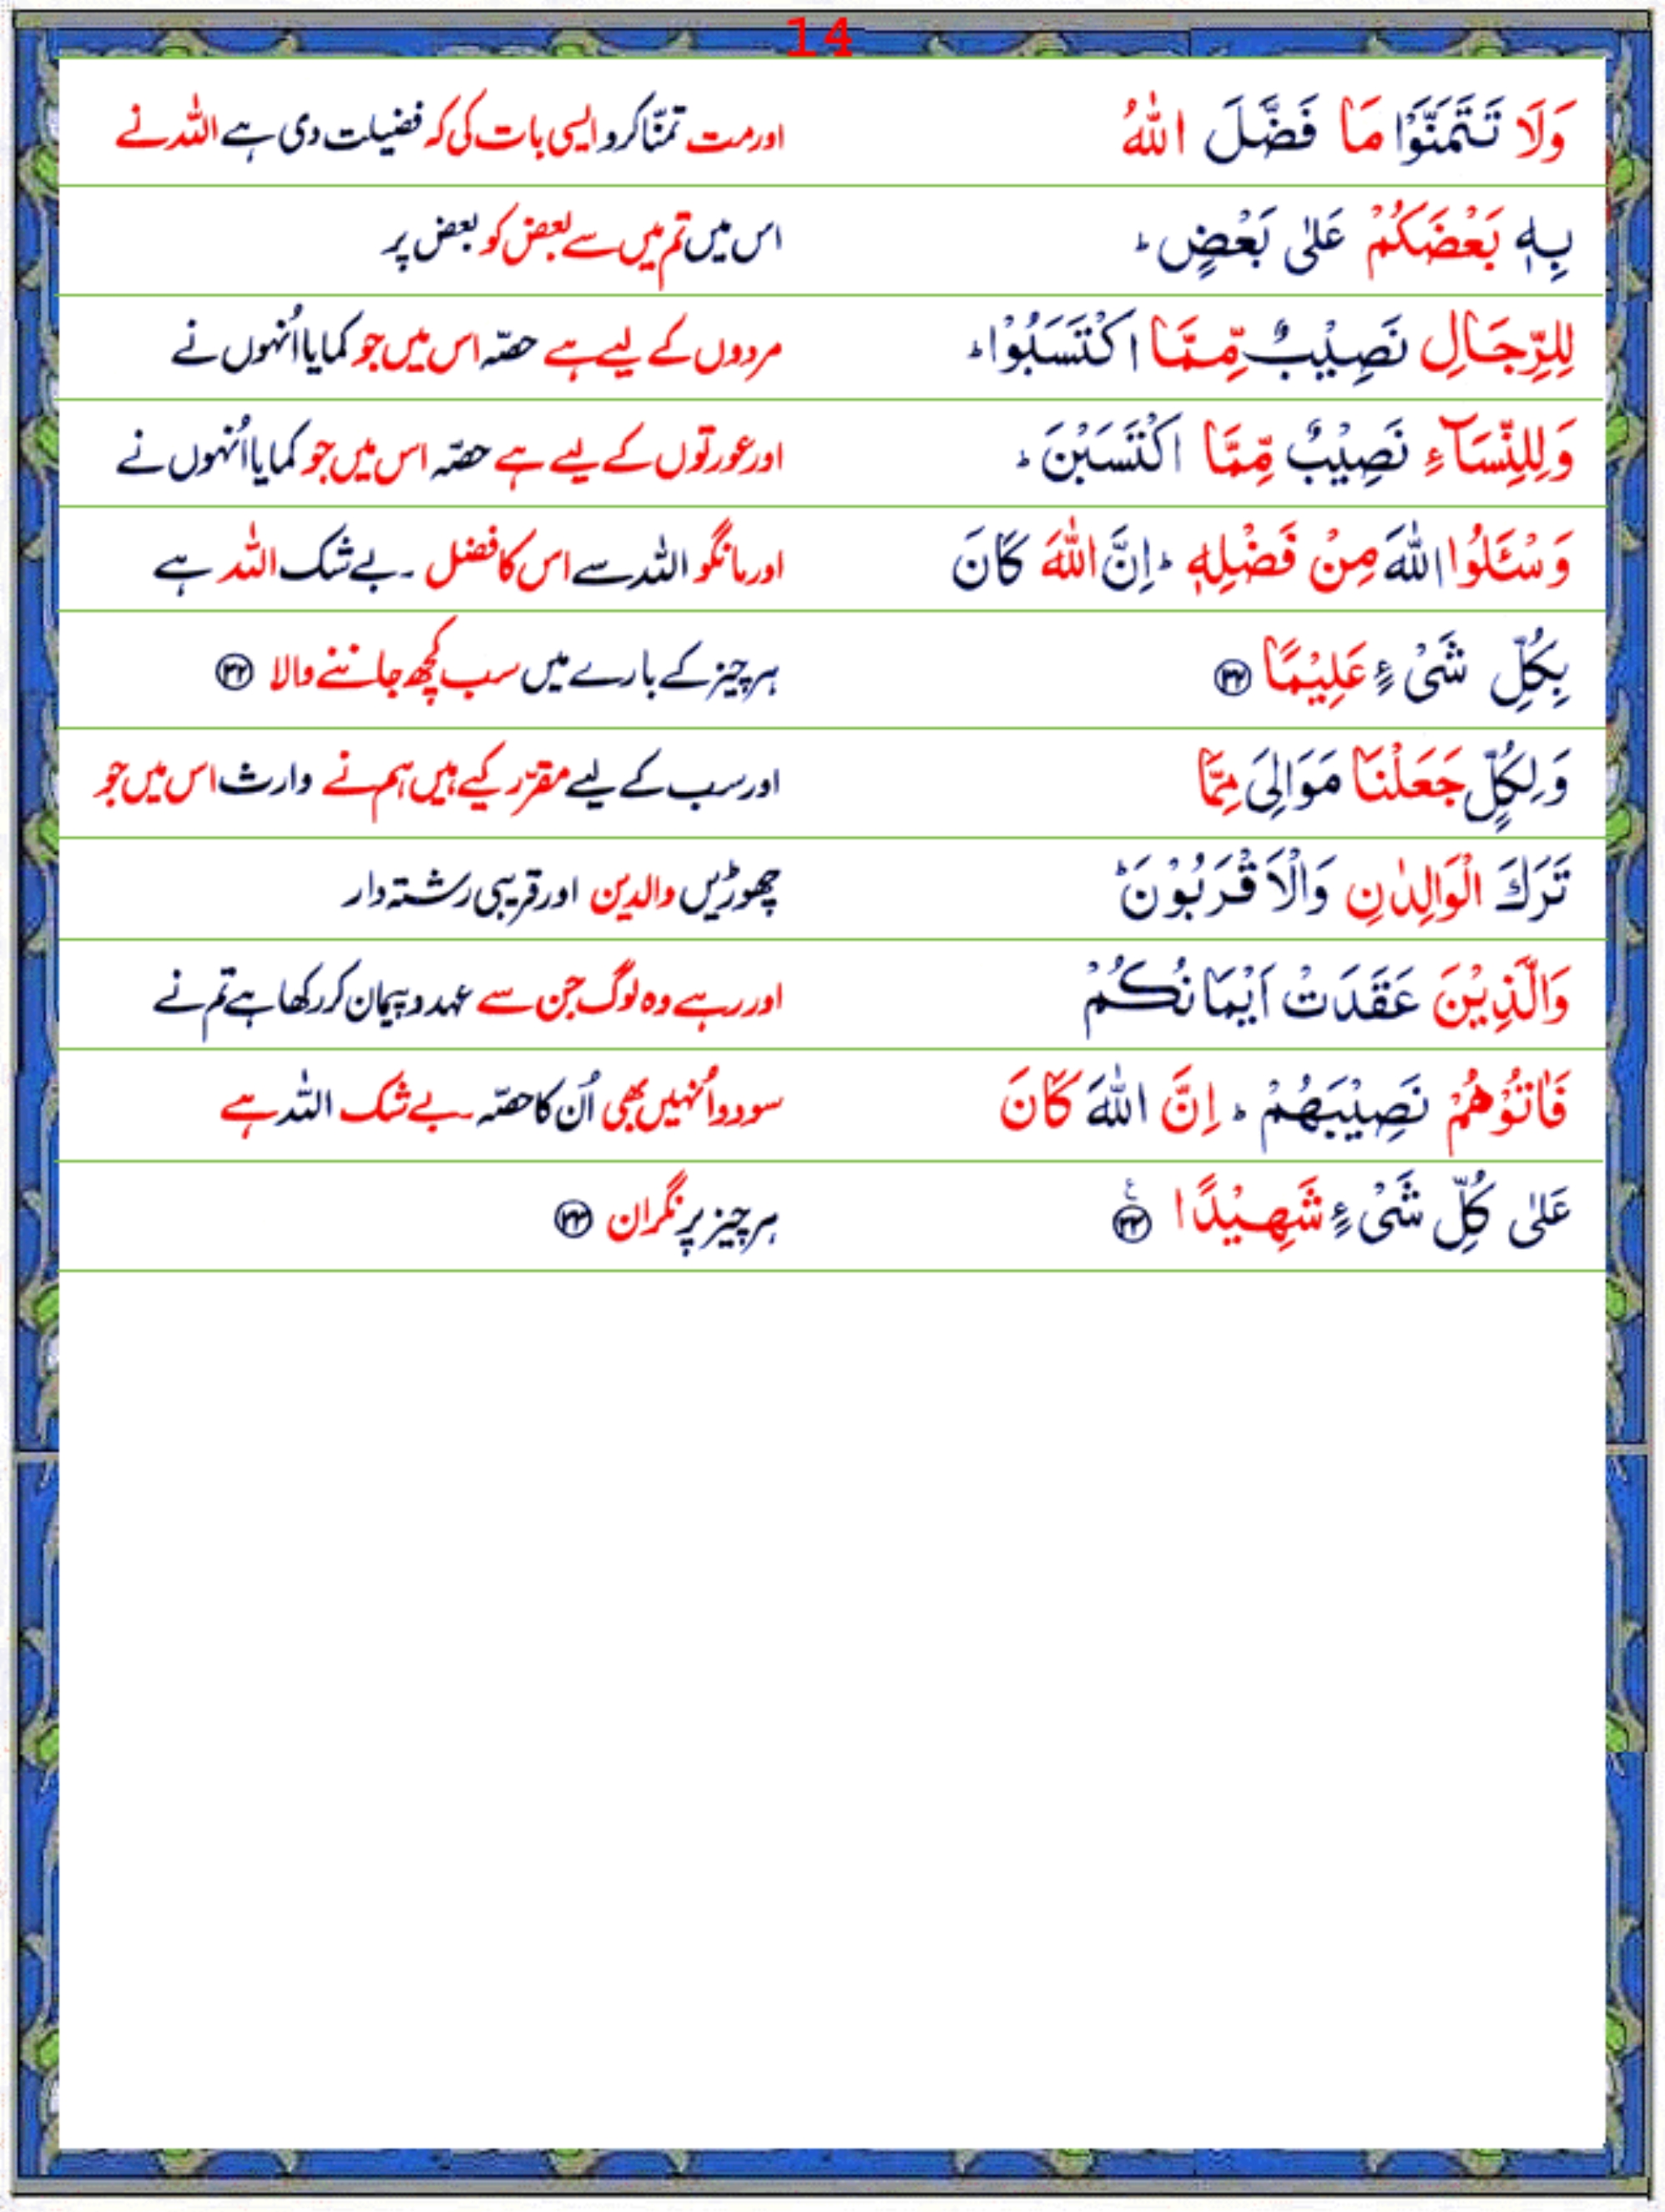 14
وَلَا تَتَمَنَّوْا مَا فَضَّلَ اللّٰهُ اور مت تمنّا کرو ایسی بات کی کہ فضیلت دی ہے اللہ نے
بِهٖ بَعْضَكُمْ عَلٰى بَعْضٍ ؕ اس میں تم میں سے بعض کو بعض پر
لِلرِّجَالِ نَصِيْبٌ مِّمَّا اكْتَسَبُوْا ؕ مردوں کے لیے ہے حصّہ اس میں جو کمایا اُنہوں نے
وَلِلنِّسَآءِ نَصِيْبٌ مِّمَّا اكْتَسَبْنَ ؕ اور عورتوں کے لیے ہے حصّہ اس میں جو کمایا اُنہوں نے
وَسْـَٔلُوا اللّٰهَ مِنْ فَضْلِهٖ ؕ اِنَّ اللّٰهَ كَانَ اور مانگو اللہ سے اس کا فضل ۔ بے شک اللہ ہے
بِكُلِّ شَىْءٍ عَلِيْمًا ۳۲ ہر چیز کے بارے میں سب کچھ جاننے والا ۳۲
وَلِكُلٍّ جَعَلْنَا مَوَالِىَ مِمَّا اور سب کے لیے مقرّر کیے ہیں ہم نے وارث اس میں جو
تَرَكَ الْوَالِدٰنِ وَالْاَقْرَبُوْنَ ؕ چھوڑیں والدین اور قریبی رشتہ دار
وَالَّذِيْنَ عَقَدَتْ اَيْمَانُكُمْ اور رہے وہ لوگ جن سے عہد و پیمان کر رکھا ہے تم نے
فَاٰتُوْهُمْ نَصِيْبَهُمْ ؕ اِنَّ اللّٰهَ كَانَ سو دو اُنہیں بھی اُن کا حصّہ ۔ بے شک اللہ ہے
عَلٰى كُلِّ شَىْءٍ شَهِيْدًا ۳۳ ع ہر چیز پر نگران ۳۳